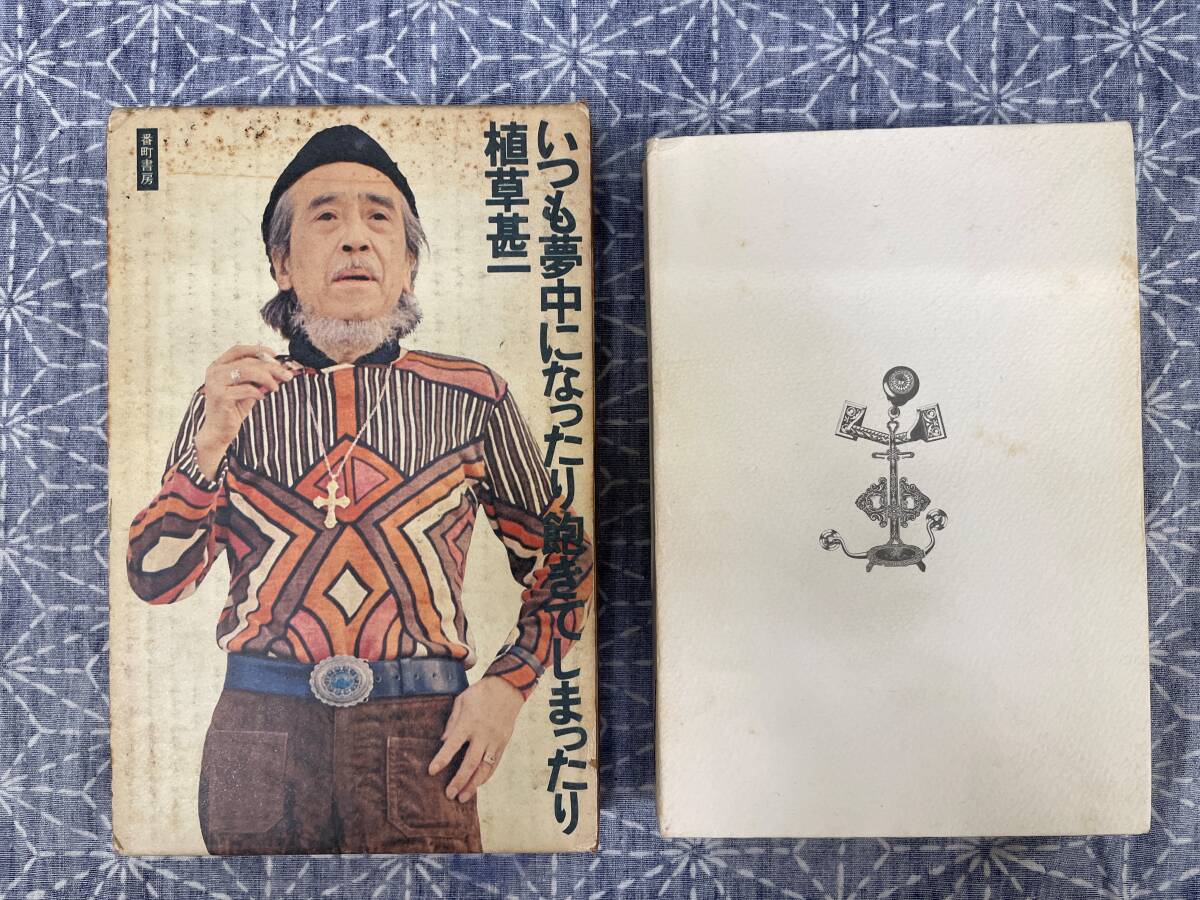 いつも夢中になったり飽きてしまったり
植草甚一
番町書房